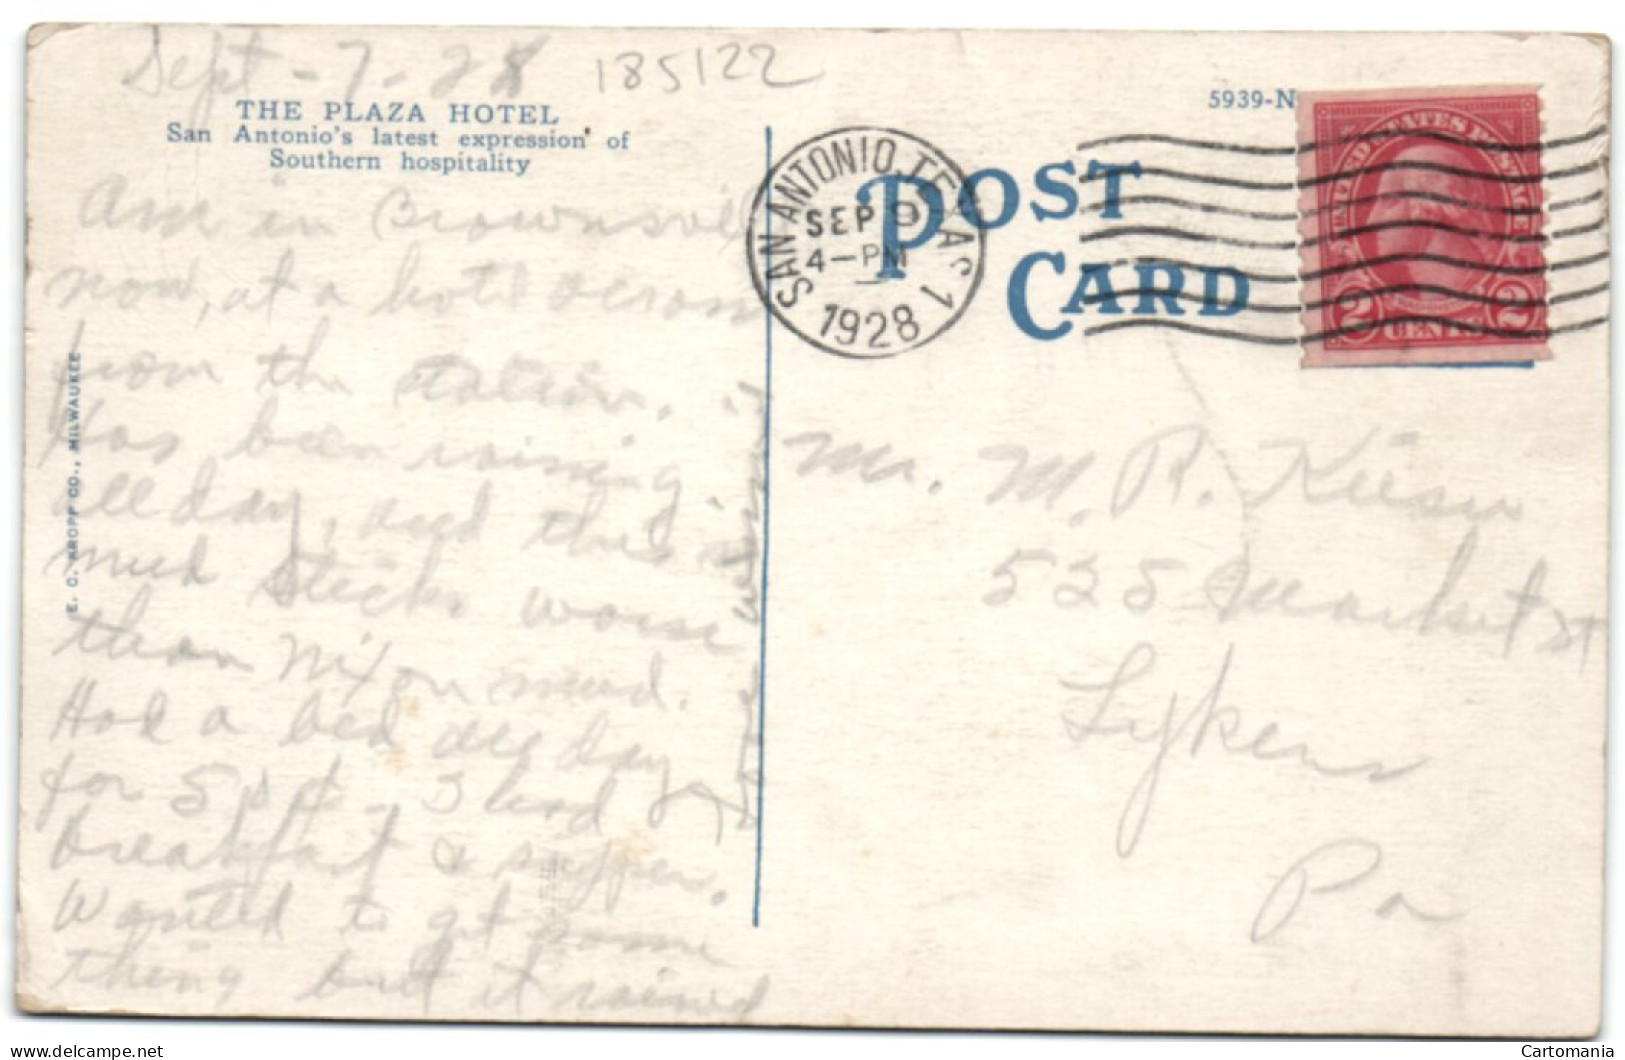 Sept - 7 - 28
185122
THE PLAZA HOTEL
San Antonio's latest expression of
Southern hospitality
Am in Brownsvil
now, at a hotel across
from the station.
Has been raining
all day, and this
mud sticks worse
than Nixon mud.
Had a bed all day
for 5 ppl. I had
breakfast & supper.
Wanted to get some
thing but it rained
E. C. KROPP CO., MILWAUKEE
5939-N
POST
CARD
SAN ANTONIO, TEXAS 1
SEP 9
4-PM
1928
UNITED STATES POSTAGE
2 CENTS 2
Mr. M. R. Kiesu
525 Market St
Lykens
Pa
Cartomania